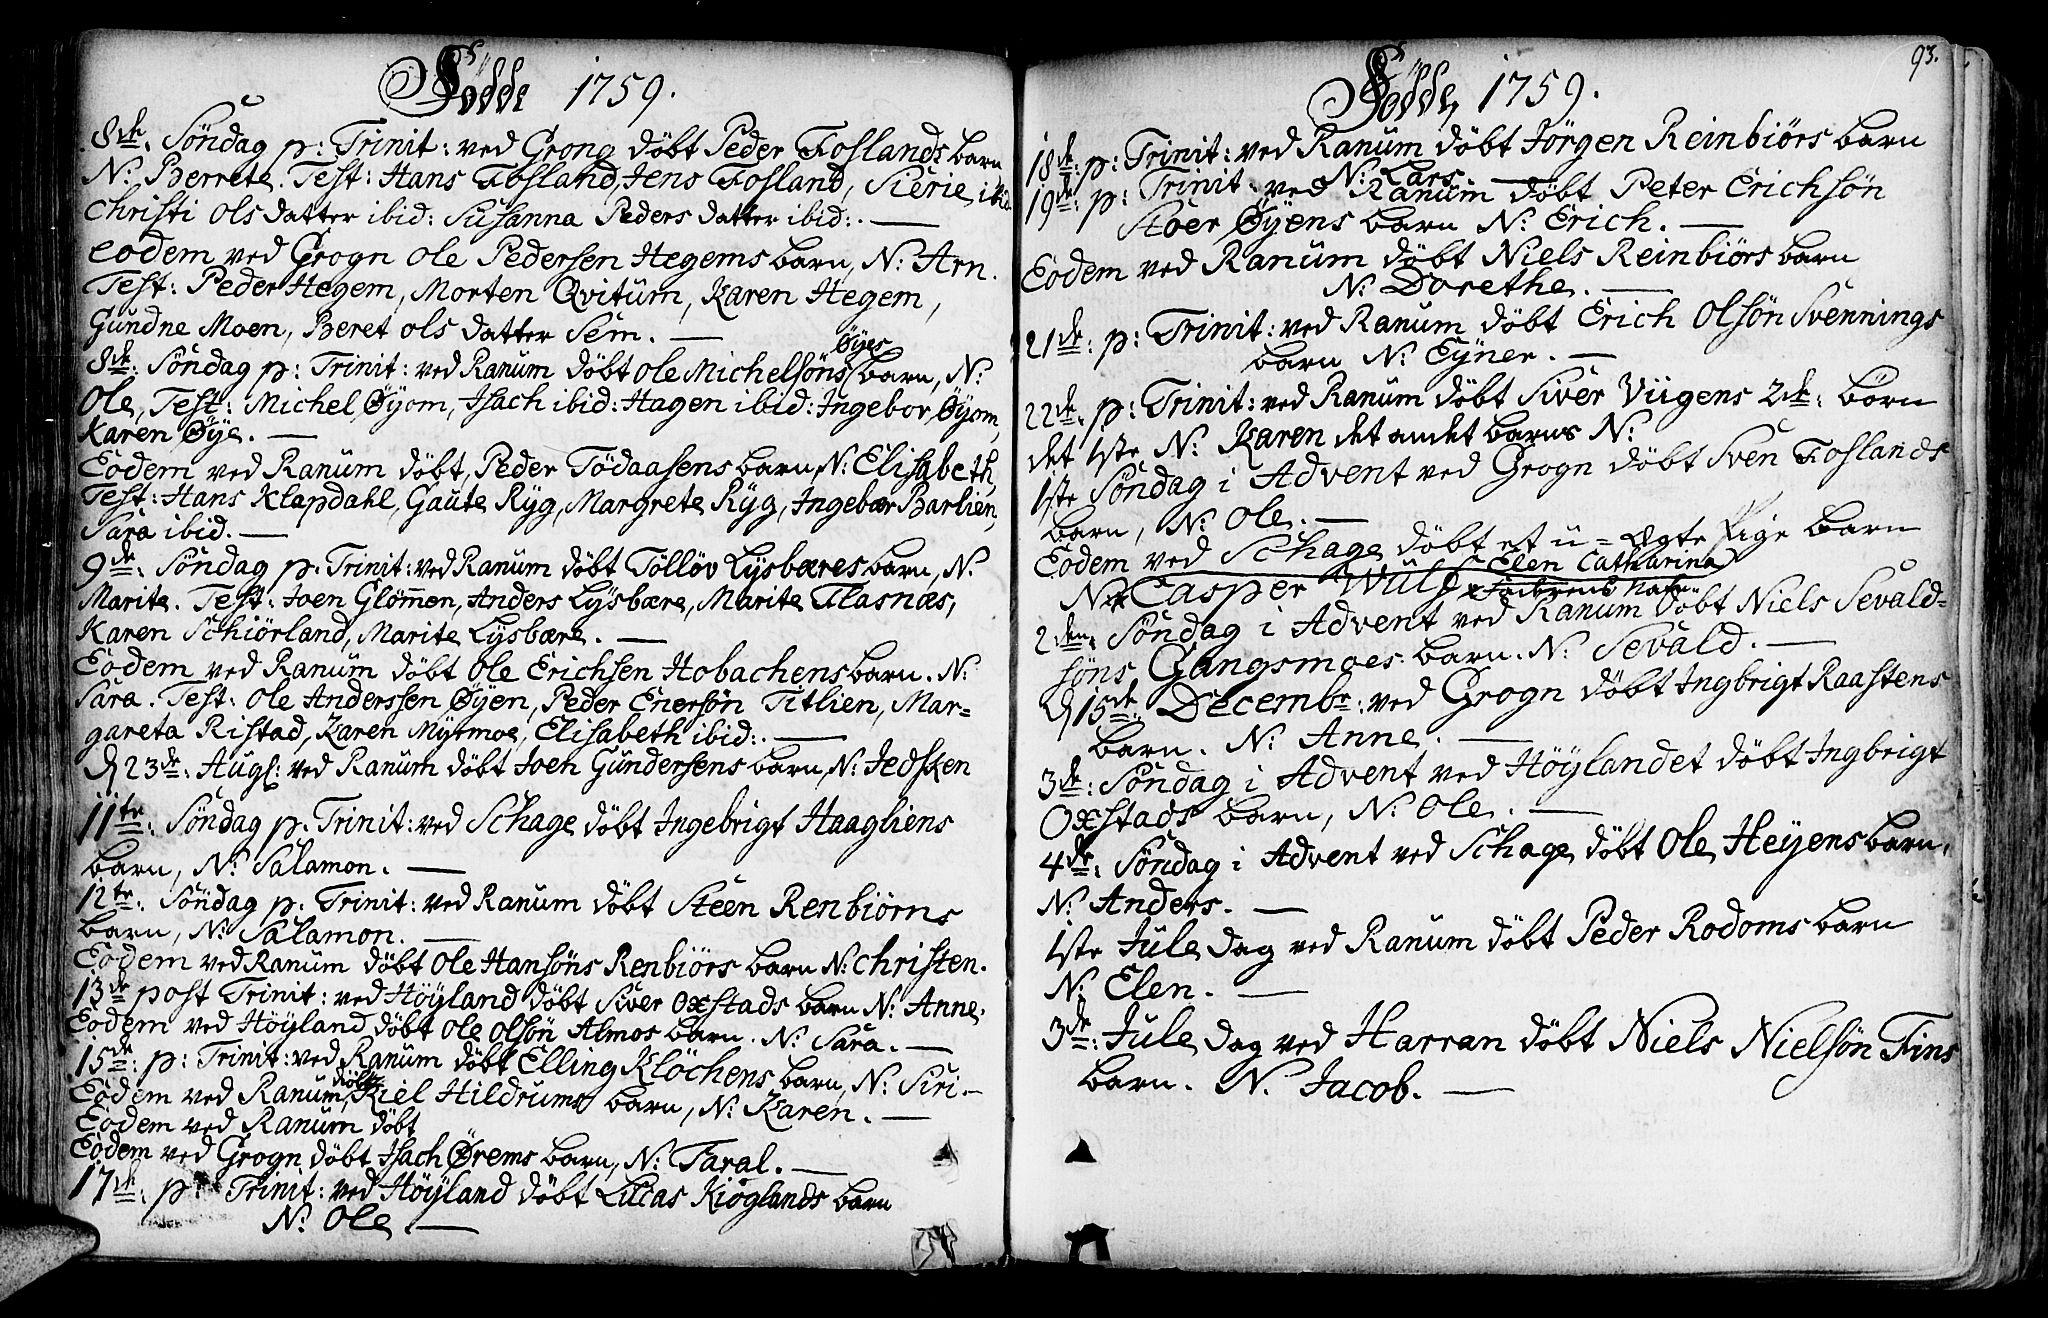 Födde 1759.
8de: Söndag p: Trinit: ved Grong döbt Peder Foslands barn
N: Berrete. Test: Hans Fosland, Jens Fosland, Sierie ibid
Christi Ols datter ibid: Susanna Peders datter ibid: —
eodem ved Grogn Ole Pedersen Hegems barn, N: Arn.
Test: Peder Hegem, Morten Qvitum, Karen Hegem,
Gundne Moen, Beret Ols datter Sem. —
8de: Söndag p: Trinit: ved Ranum döbt Ole Michelsöns Øyes barn, N:
Ole, Test: Michel Øyom, Isach ibid: Hagen ibid: Ingebor Øyom,
Karen Øye. —
Eodem ved Ranum döbt, Peder Tödaasens barn, N: Elisabeth,
Test: Hans Klapdahl, Gaute Ryg, Margrete Ryg, Ingebor Barlien,
Sara ibid. —
9de: Söndag p: Trinit: ved Ranum döbt Tölløv Lysbæres barn, N:
Marite. Test: Joen Glömmen, Anders Lysbære, Marite Flasnæs,
Karen Schiörland, Marite Lysbære. —
Eodem ved Ranum döbt Ole Erichsen Hobachens barn. N:
Sara. Test: Ole Anderssen Øyen, Peder Enersön Titlien, Mar=
gareta Ristad, Karen Mytmoe, Elisabeth ibid: —
d 23de: Aug: ved Ranum döbt Joen Gundersens barn, N: Jedsken
11te: Söndag p: Trinit: ved Schage döbt Ingebrigt Haagliens
barn, N: Salamon. —
12te: Söndag p: Trinit: ved Ranum döbt Steen Renbiörns
barn, N: Salamon. —
Eodem ved Ranum döbt Ole Hansöns Renbiörs barn N: Christen.
13de post Trinit: ved Höyland döbt Siver Oxstads barn N: Anne.
Eodem ved Höyland döbt Ole Olsön Almos barn. N: Sara. —
15de: p: Trinit: ved Ranum döbt Elling Klöchens barn, N: Siri. —
Eodem ved Ranum döbt Kiel Hildrums barn, N: Karen. —
Eodem ved Ranum döbt
Eodem ved Grogn döbt Isach Ørems barn, N: Taral. —
17de: p: Trinit: ved Höyland döbt Lucas Kiöglands barn
N: Ole. —
93.
Födde 1759.
18de: p: Trinit: ved Ranum döbt Jörgen Reinbiörs barn
N: Lars —
19de: p: Trinit: ved Ranum döbt Peter Erichsön
Stoer Øyens barn N: Erich. —
Eodem ved Ranum döbt Niels Reinbiörs barn
N: Dorethe. —
21de: p: Trinit: ved Ranum döbt Erich Olsön Svennings
barn N: Eyner. —
22de: p: Trinit: ved Ranum döbt Siver Viigens 2de: börn
det 1ste N: Karen det andet barns N:
1ste Söndag i Advent ved Grogn döbt Sven Foslands
barn, N: Ole. —
Eodem ved Schage döbt et u=ægte Pige barn
N: Casper Wulf Elen Catharina
2den: Söndag i Advent ved Ranum döbt Niels Sevald=
söns Gangsmoes barn. N: Sevald. —
d 15de: Decembr: ved Grogn döbt Ingbrigt Raastens
barn. N: Anne. —
3de: Söndag i Advent ved Höylandet döbt Ingbrigt
Oxstads barn, N: Ole. —
4de: Söndag i Advent ved Schage döbt Ole Heyens barn,
N: Anders. —
1ste Jule dag ved Ranum döbt Peder Rodoms barn
N: Elen. —
3de: Jule dag ved Harran döbt Niels Nielsön Fins
barn. N. Jacob. —